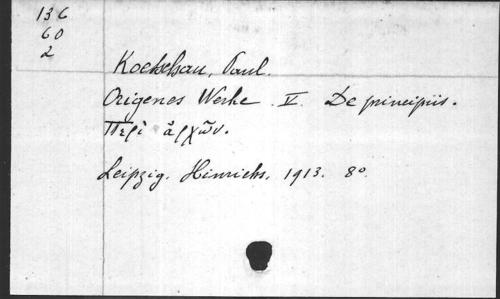 136
60
2
Koetschau, Paul.
Origenes Werke V. De principiis.
Περὶ ἀρχῶν.
Leipzig. Hinrichs. 1913. 8o.